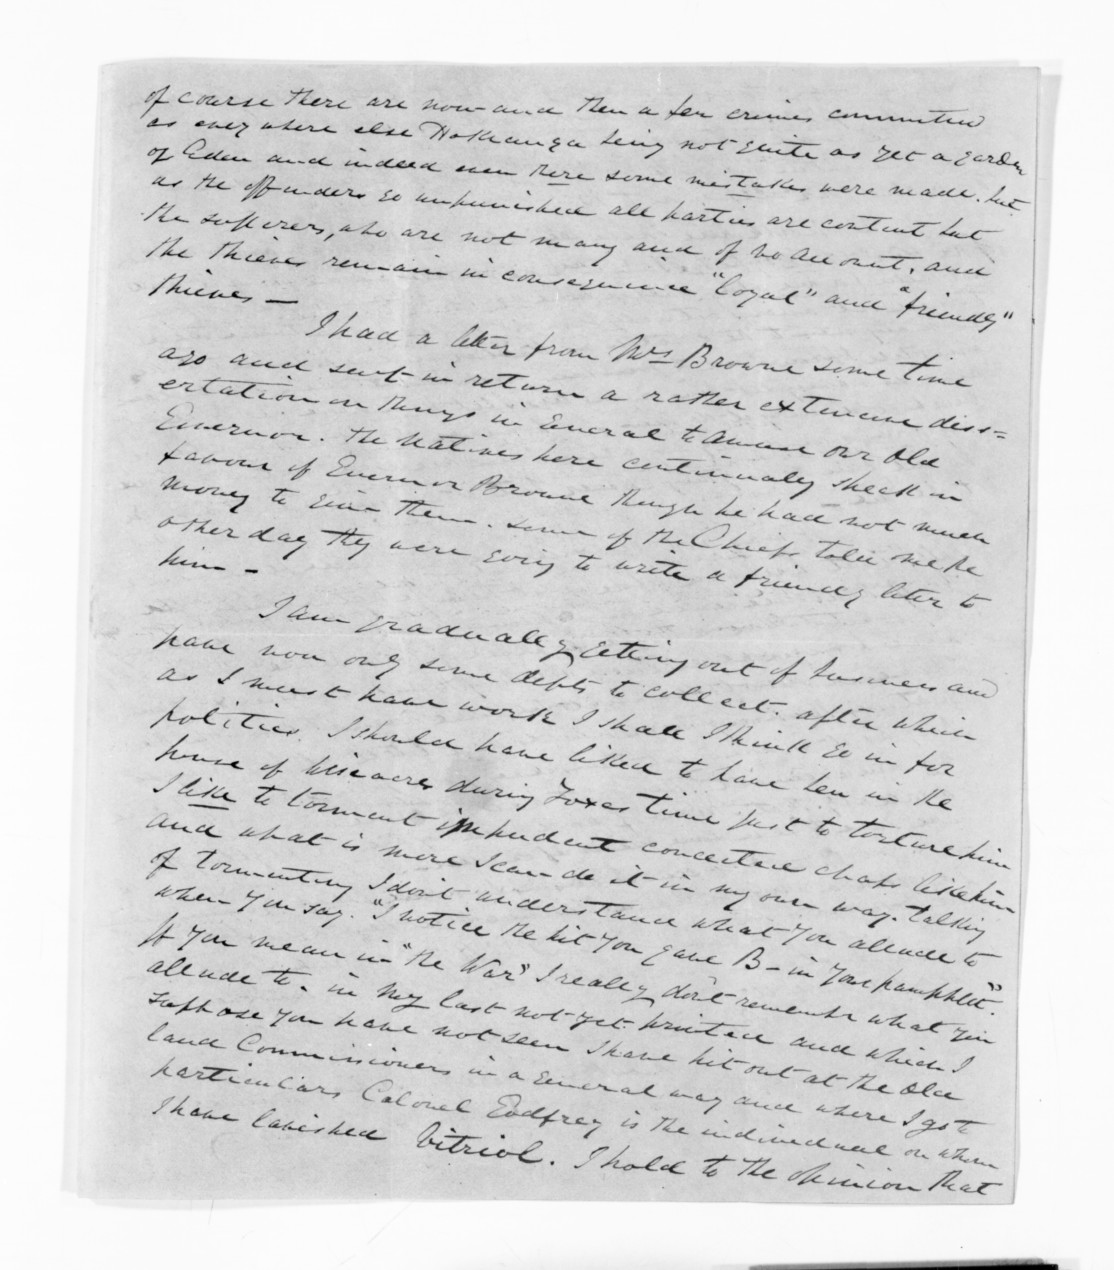 of course there are now and then a few crimes committed
as every where else Hokianga being not quite as yet a garden
of Eden and indeed even there some mistakes were made. but
as the offenders go unpunished all parties are content but
the sufferers, who are not many and of no account, and
the thieves remain in consequence "loyal" and "friendly"
thieves —
I had a letter from Mrs Browne some time
ago and sent in return a rather extensive diss=
ertation on things in General to amuse our Old
Governor. the Natives here continually speak in
favour of Governor Browne though he had not much
money to give them. some of the Chiefs told me the
other day they were going to write a friendly letter to
him —
I am gradually getting out of business and
have now only some debts to collect. after which
as I must have work I shall I think go in for
politics. I should have liked to have been in the
house of during Foxes time just to torture him
I like to torment impudent conceited chaps like him
and what is more I can do it in my own way. talking
of tormenting I dont understand what you allude to
when you say. "I notice the hit you gave B— in your pamphlet".
If you mean in "the War" I really dont remember what you
allude to. in my last not yet printed and which I
suppose you have not seen I have hit out at the old
land Commissioners in a general way and where I go to
particulars Colonel Godfrey is the individual on whom
I have lavished Vitriol. I hold to the opinion that